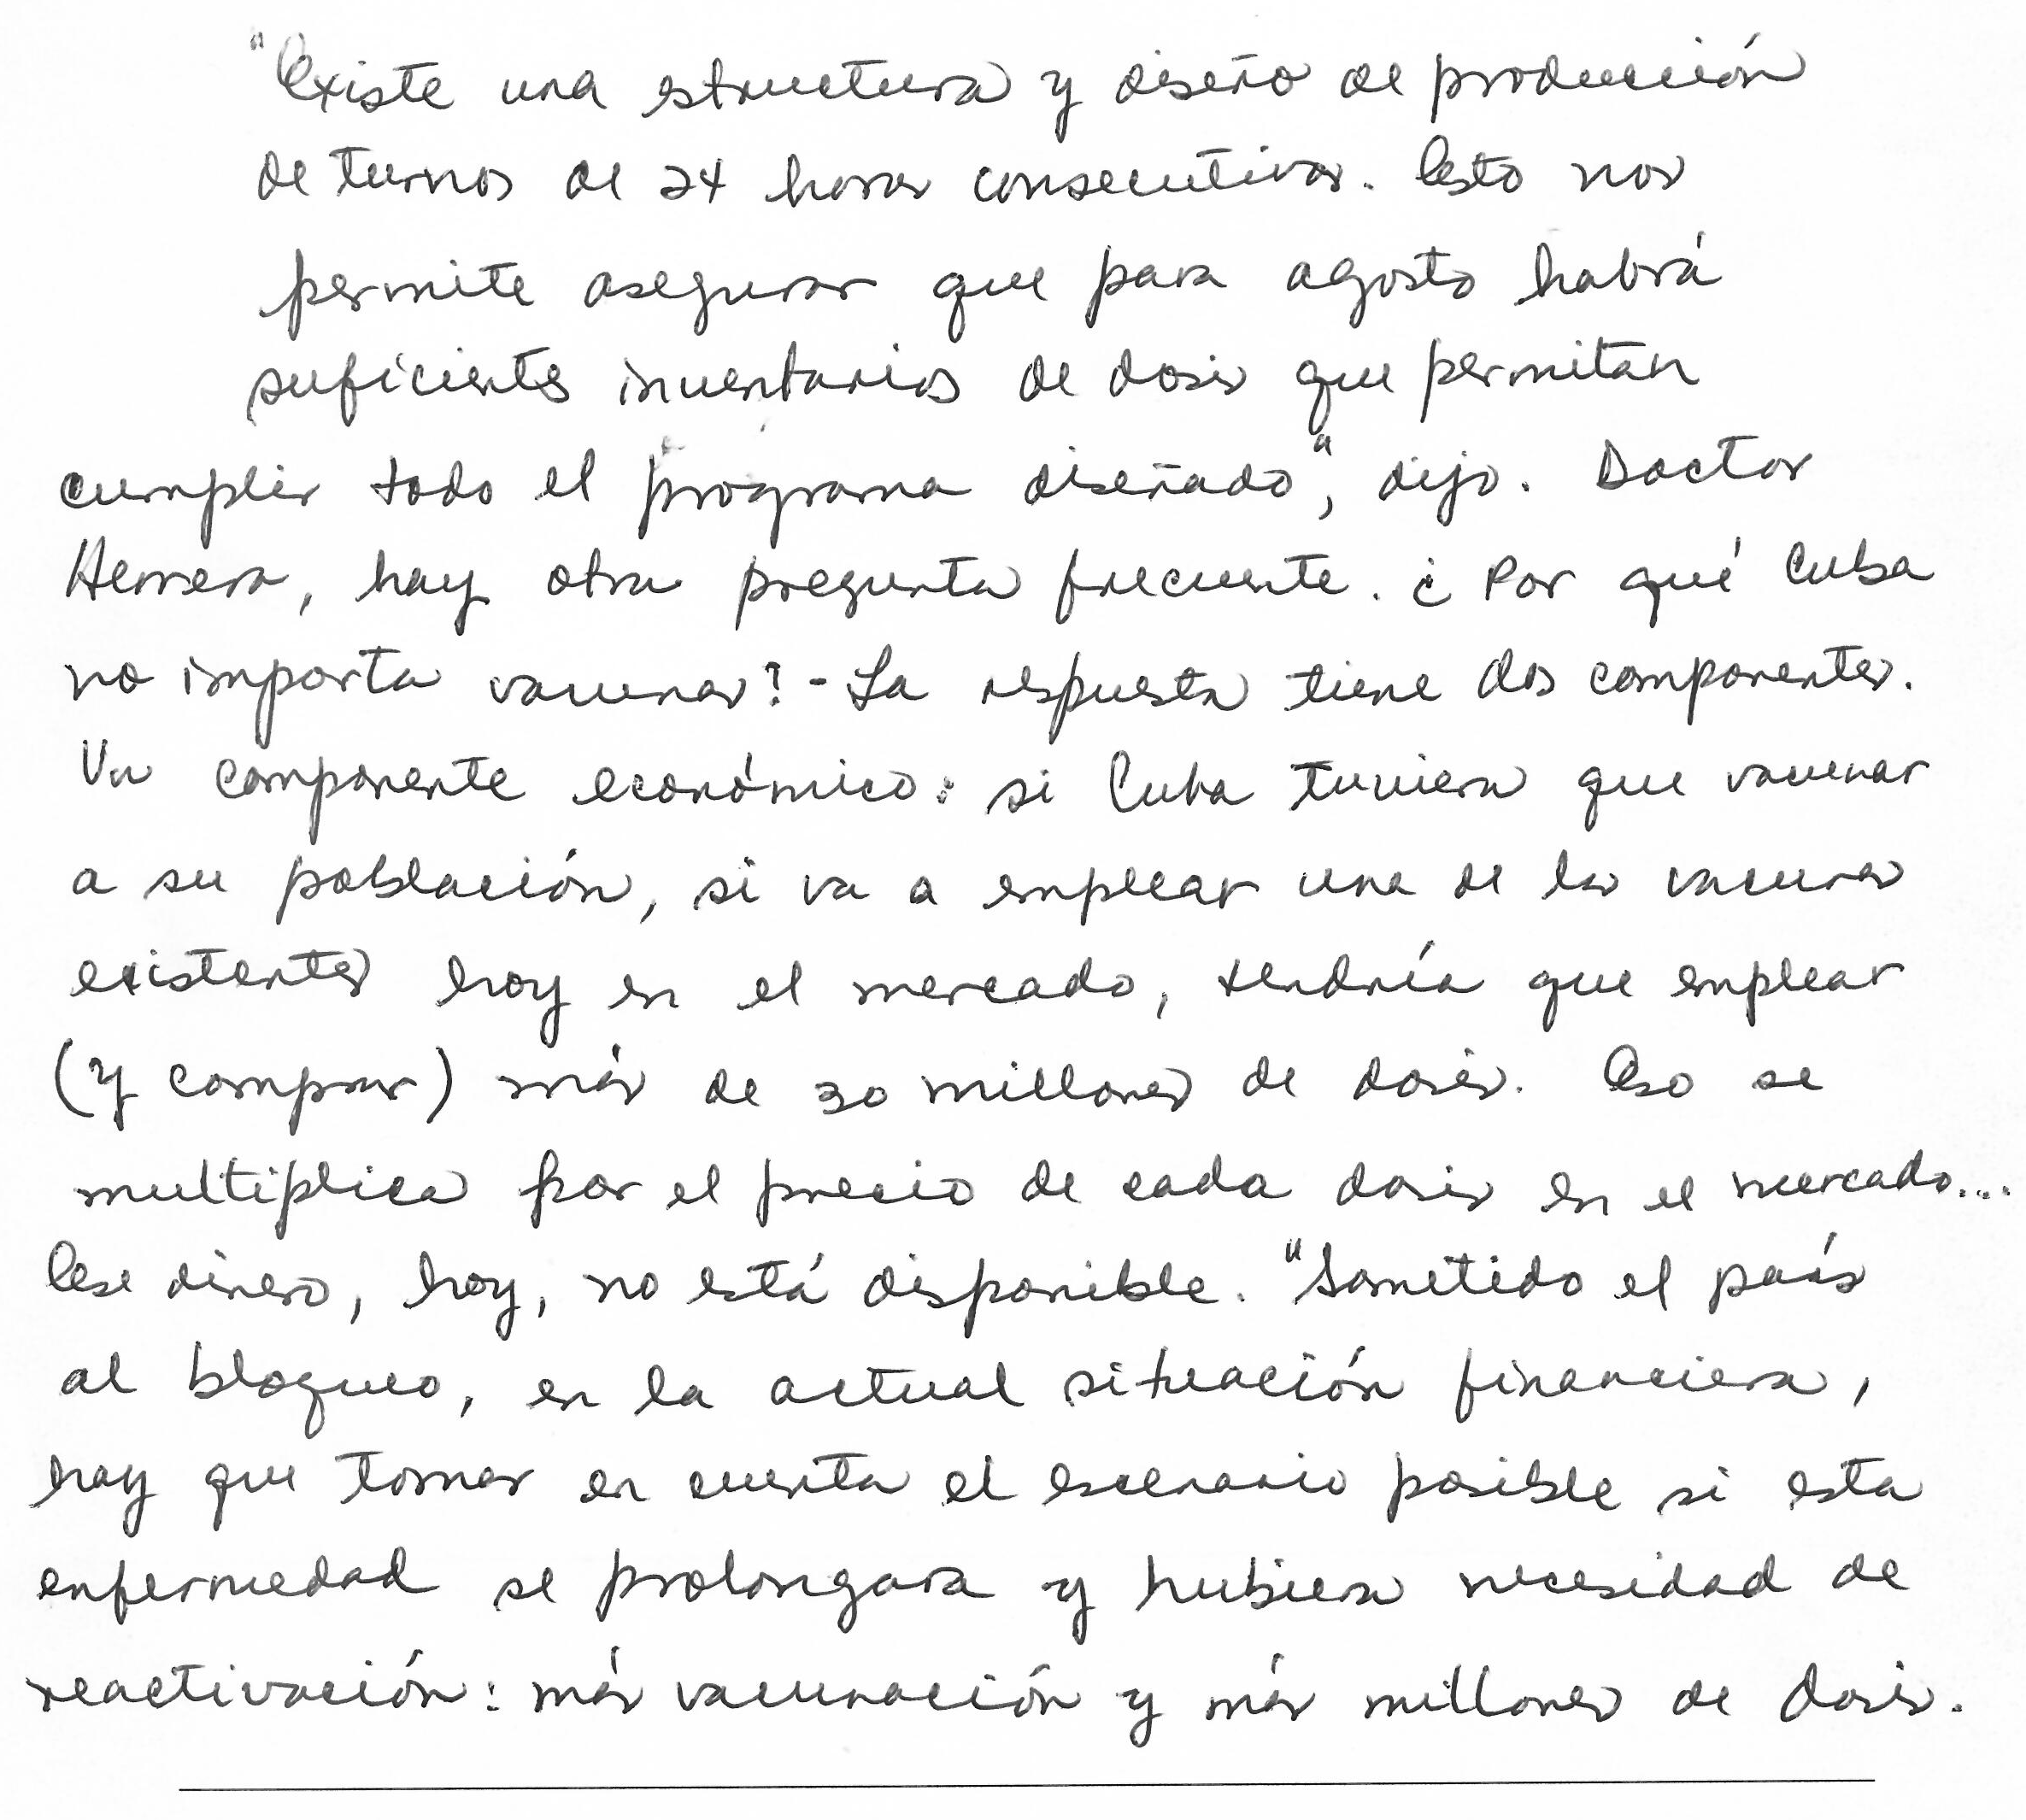 "Existe una estructura y diseño de producción
de turnos de 24 horas consecutivas. Esto nos
permite asegurar que para agosto habrá
suficientes inventarios de dosis que permitan
cumplir todo el programa diseñado", dijo. Doctor
Herrera, hay otra pregunta frecuente. ¿Por qué Cuba
no importa vacunas? - La respuesta tiene dos componentes.
Un componente económico: si Cuba tuviera que vacunar
a su población, si va a emplear una de las vacunas
existentes hoy en el mercado, tendría que emplear
(y comprar) más de 30 millones de dosis. Eso se
multiplica por el precio de cada dosis en el mercado...
Ese dinero, hoy, no está disponible. "Sometido el país
al bloqueo, en la actual situación financiera,
hay que tomar en cuenta el escenario posible si esta
enfermedad se prolongara y hubiera necesidad de
reactivación: más vacunación y más millones de dosis.